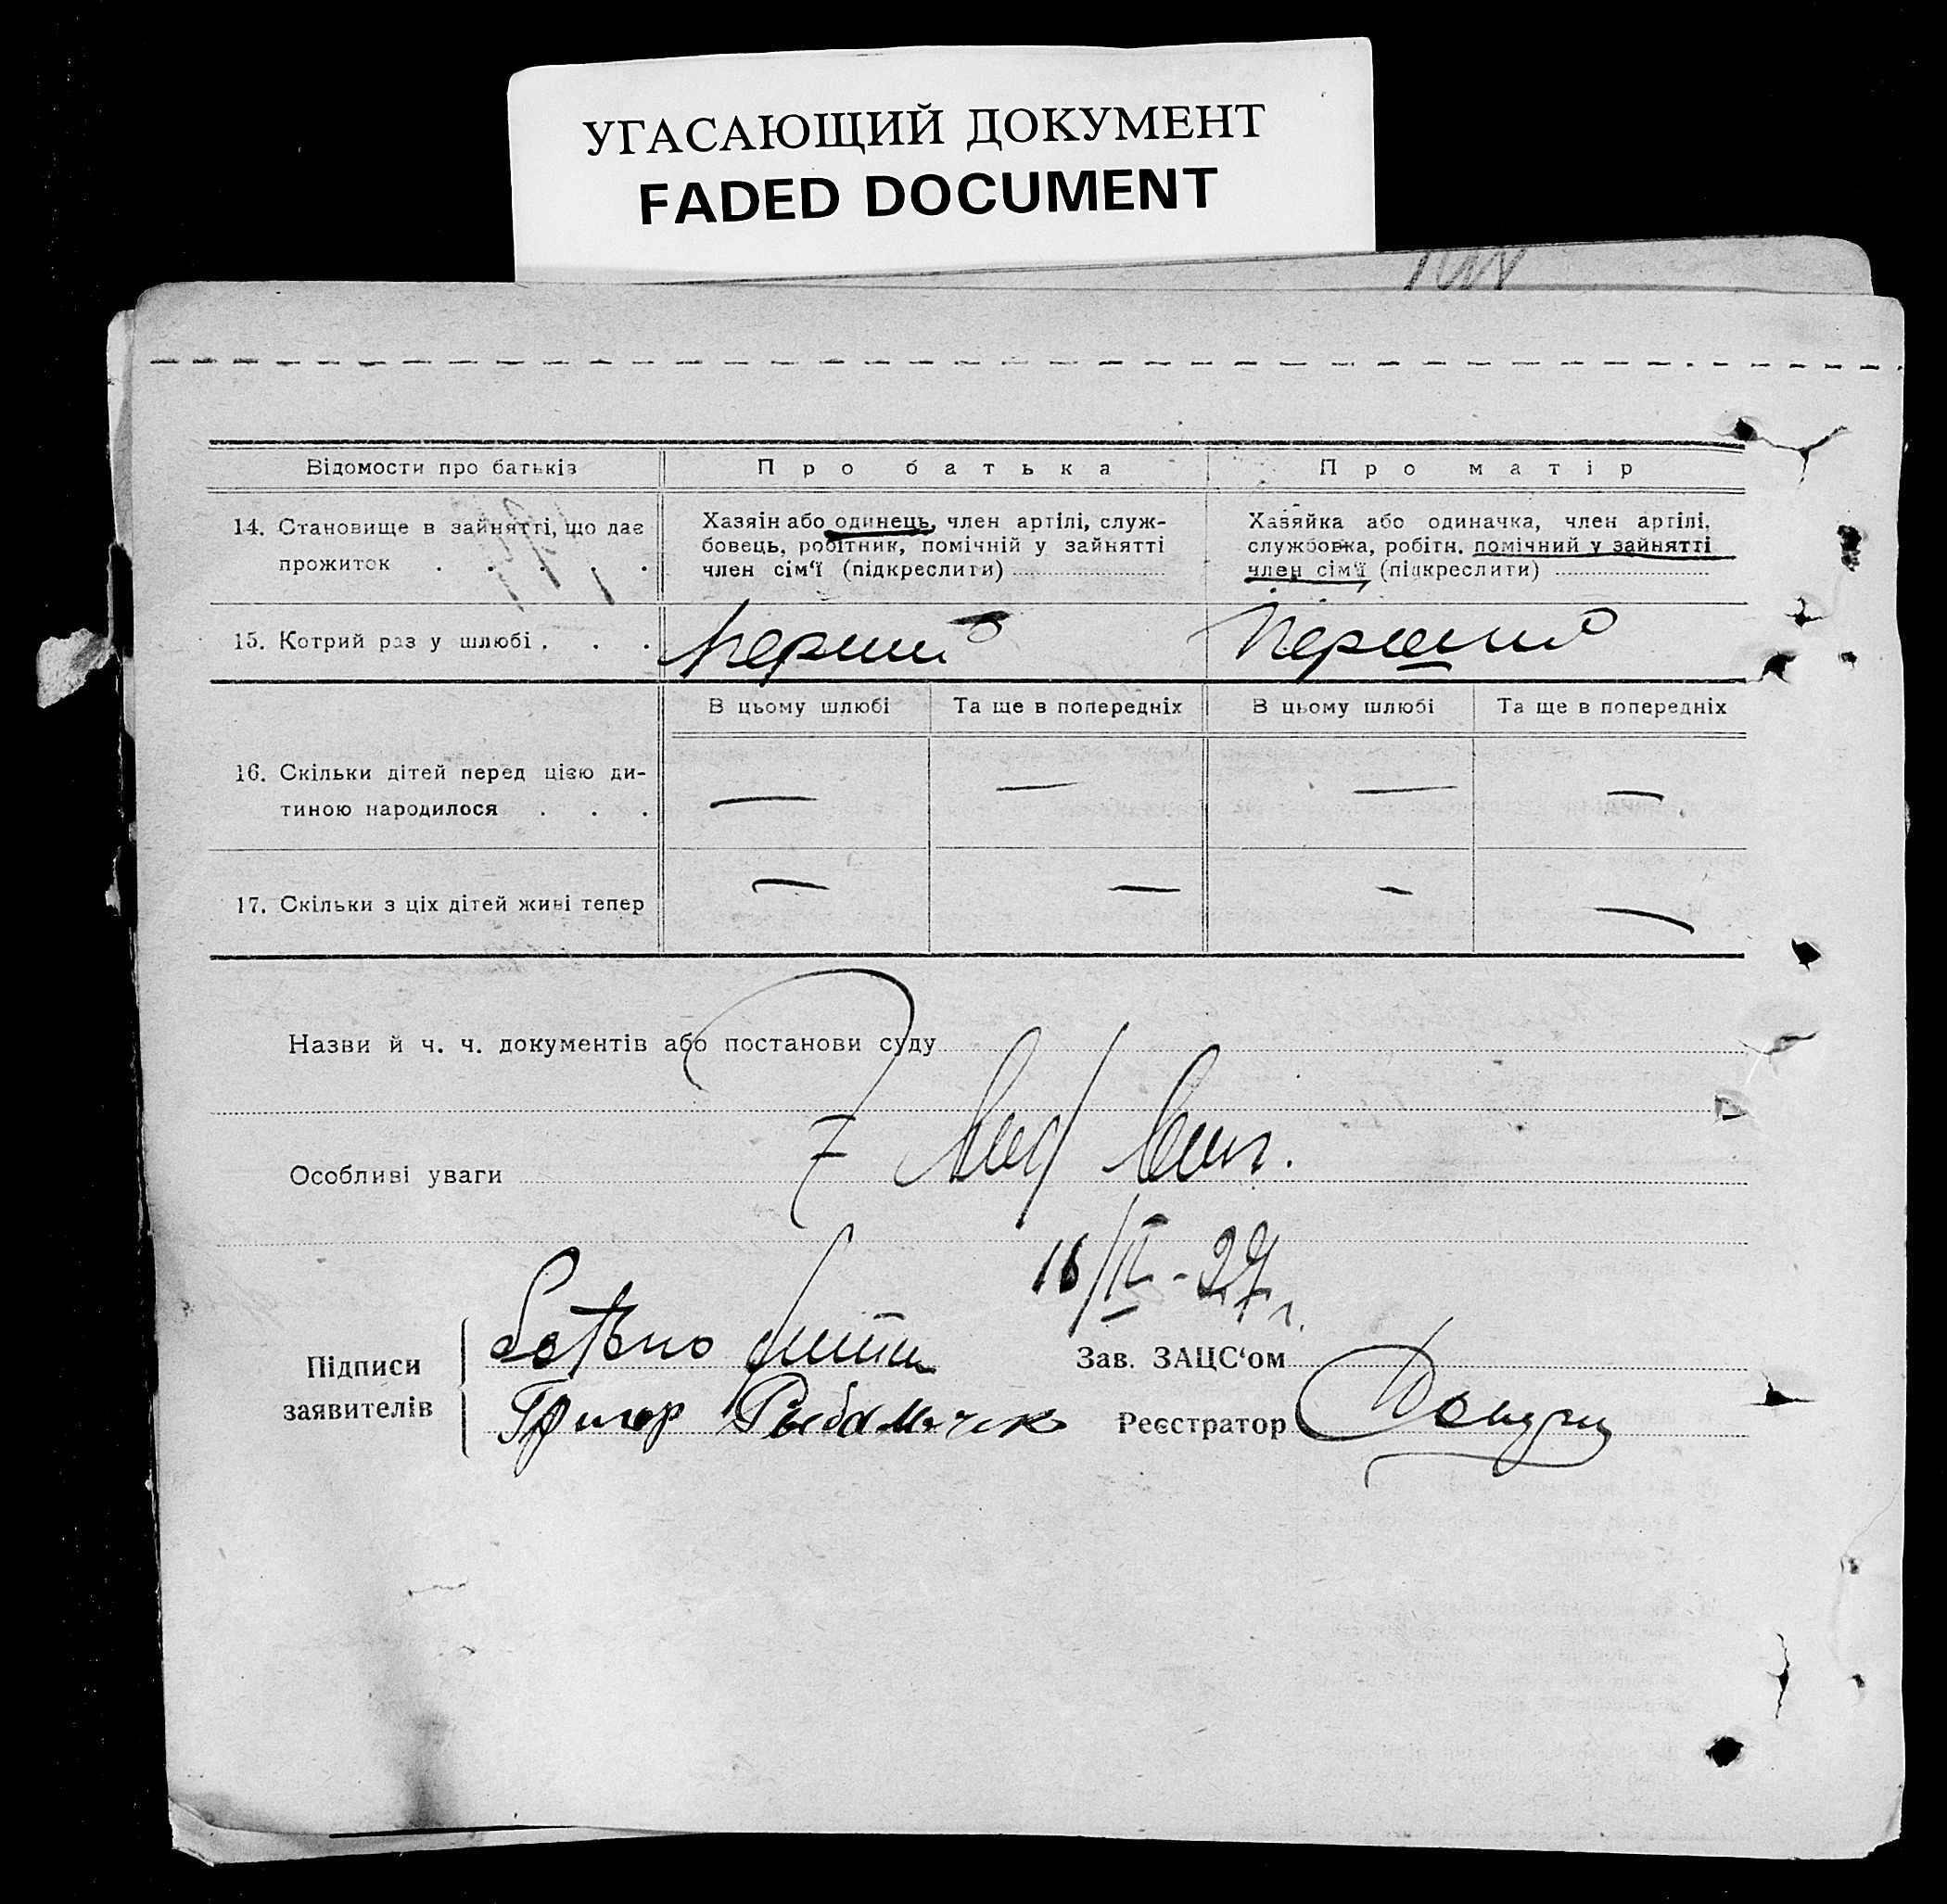 УГАСАЮЩИЙ ДОКУМЕНТ
FADED DOCUMENT
Відомости про батьків
Про батька
Про матір
14. Становище в зайнятті, що дає
прожиток . . . . .
Хазяін або одинець, член артілі, служ-
бовець, робітник, помічній у зайнятті
член сім‘ї (підкреслити)
Хазяйка або одиначка, член артілі,
службовка, робітн. помічний у зайнятті
член сім‘ї (підкреслити)
15. Котрий раз у шлюбі . . .
первий
Первий
В цьому шлюбі
Та ще в попередніх
В цьому шлюбі
Та ще в попередніх
16. Скільки дітей перед цією ди-
тиною народилося . . .
— — — —
17. Скільки з ціх дітей живі тепер
— — — —
Назви й ч. ч. документів або постанови суду
Особливі уваги
16/IV-27 г.
Підписи
заявителів
Зав. ЗАЦС‘ом
Григор
Реєстратор